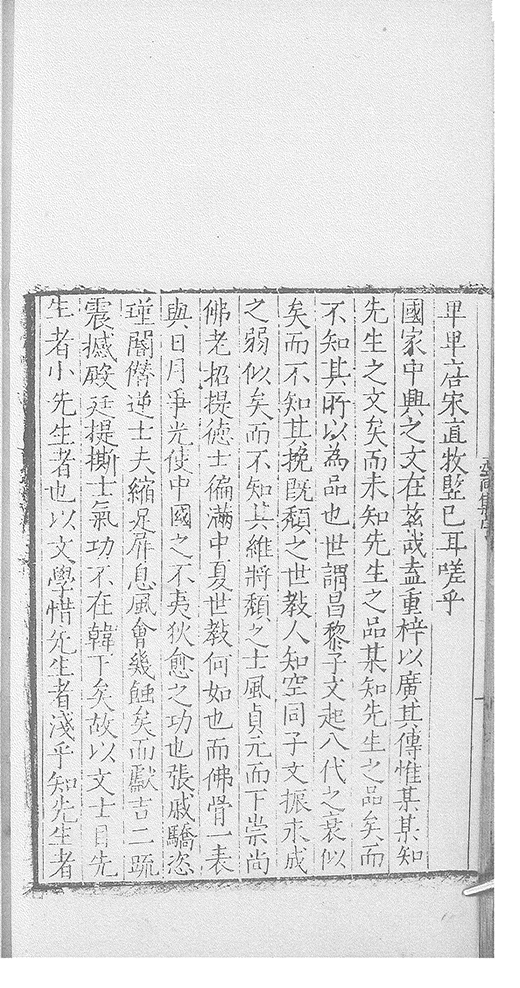 卑卑居宋直牧豎已耳嗟乎
國家中興之文在茲哉盍重梓以廣其傳惟某某知
先生之文矣而未知先生之品某知先生之品矣而
不知其所以為品也世謂昌黎子文起八代之衰似
矣而不知其挽既頹之世教人知空同子文振永成
之弱似矣而不知其維將頹之士風貞元而下崇尚
佛老招提德士徧滿中夏世教何如也而佛骨一表
與日月爭光使中國之不夷狄愈之功也張戚驕恣
瑾閹僭逆士夫縮足屏息風會幾蝕矣而獻吉二疏
震撼殿廷提撕士氣功不在韓下矣故以文士目先
生者小先生者也以文學惜先生者淺乎知先生者